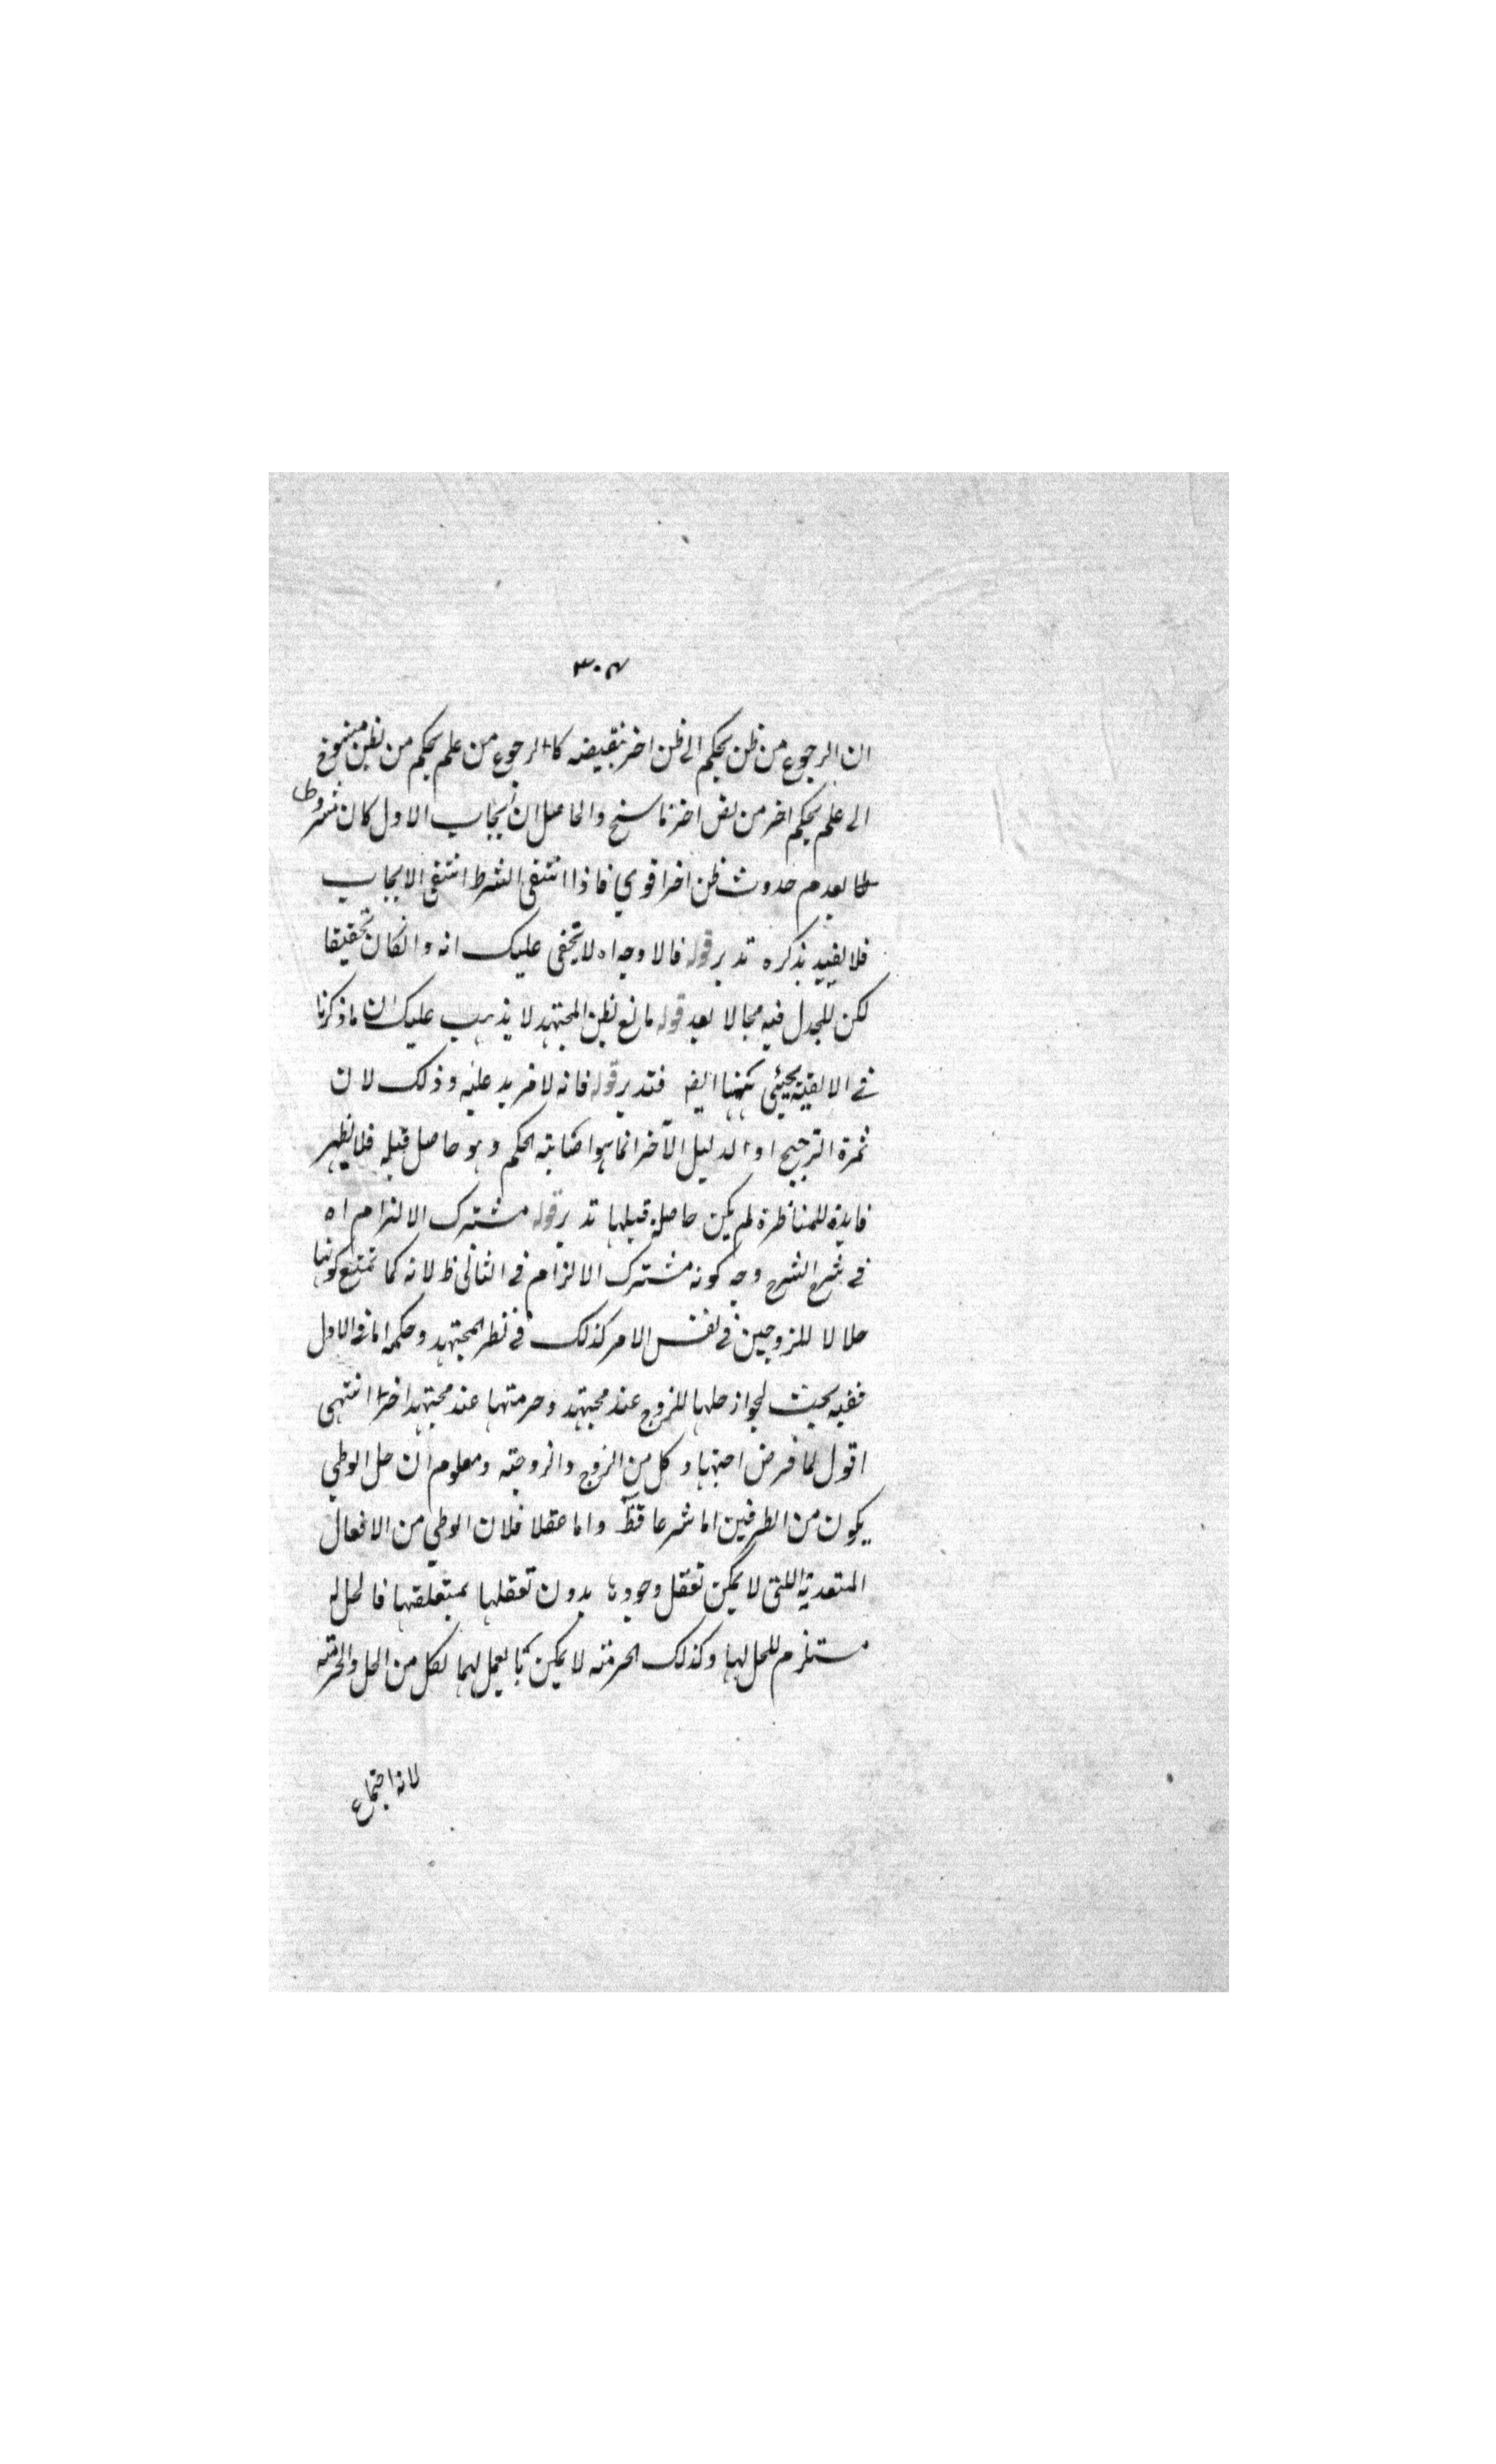 ٣٠٧
ان الرجوع من ظن بحكم الى ظن اخر بنقيضه كالرجوع من علم بحكم من نص منسوخ
الى علم بحكم اخر من نص اخر ناسخ والحاصل ان ايجاب الاول كان مشروطا
بعدم حدوث ظن اخر اقوي فاذا انتفى الشرط انتفى الايجاب
فلا يفيد بذكره تدبر قوله فالاوجه اه لا يخفى عليك انه وانكان تحقيقا
لكن للجدل فيه مجالا بعد قوله مانع لظن المجتهد لا يذهب عليك ان ما ذكرنا
في يجيئي ههنا ايضا فتدبر قوله فانه لا مزيد عليه وذلك لان
ثمرة الترجيح او الدليل الآخر انما هو اصابته الحكم وهو حاصل قبله فلا يظهر
فايدة للمناظرة لم يكن حاصلة قبلها تدبر قوله مشترك الالزام اه
في شرح الشرح وجه كونه مشترك الالزام في الثاني ظ لانه كما تمتنع كونها
حلالا للزوجين في نفس الامر كذلك في نظر المجتهد وحكمه اما في الاول
ففيه بحث لجواز حلها للزوج عند مجتهد وحرمتها عند مجتهد اخر انتهى
اقول لما فرض اجتهاد كل من الزوج والزوجته ومعلوم ان حل الوطي
يكون من الطرفين اما شرعا فظ واما عقلا فلان الوطي من الافعال
المتعدية اللتى لا يمكن تعقل وجودها بدون تعقلها بمتعلقها فالحل له
مستلزم للحل لها وكذلك الحرمته لا يمكن العمل لهما لكل من الحل والحرمته
لانه اجتماع